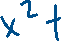 x² +